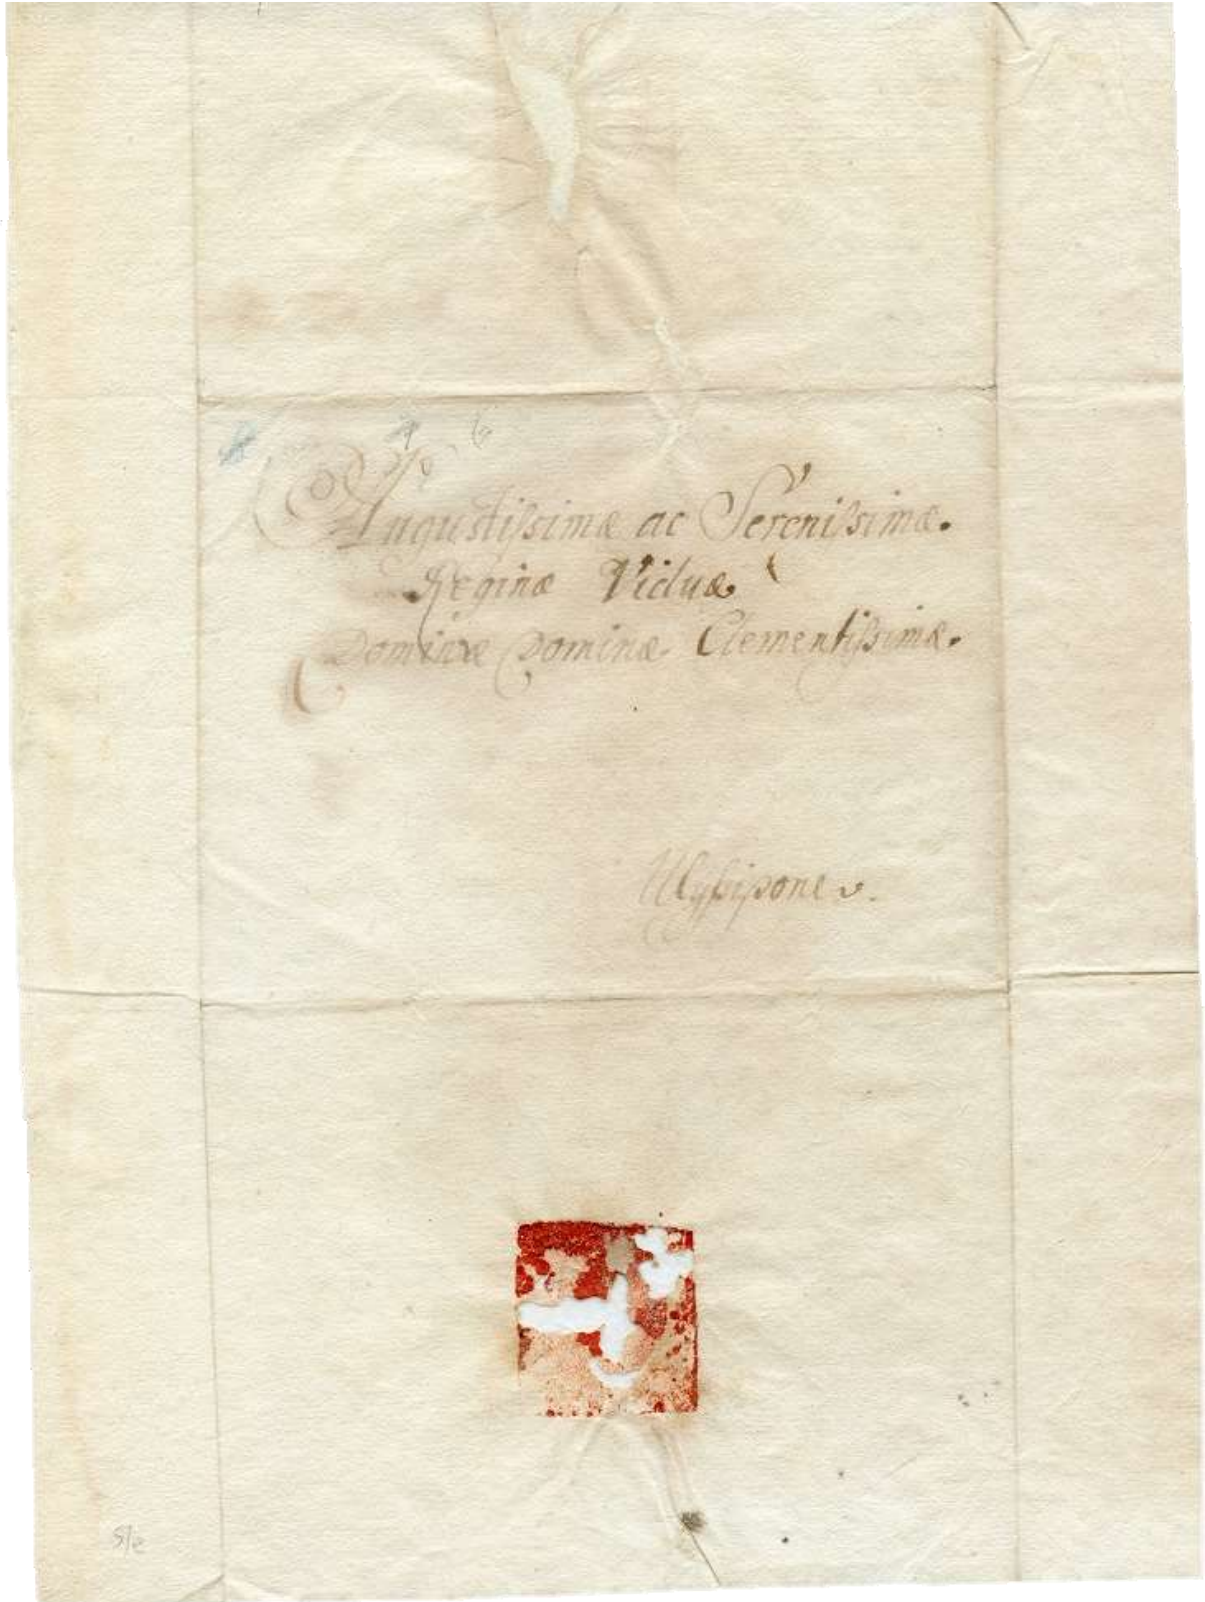 Augustissimæ ac Serenissimæ.
Reginæ Viduæ
Dominæ Dominæ Clementissimæ.
Ulyssipone